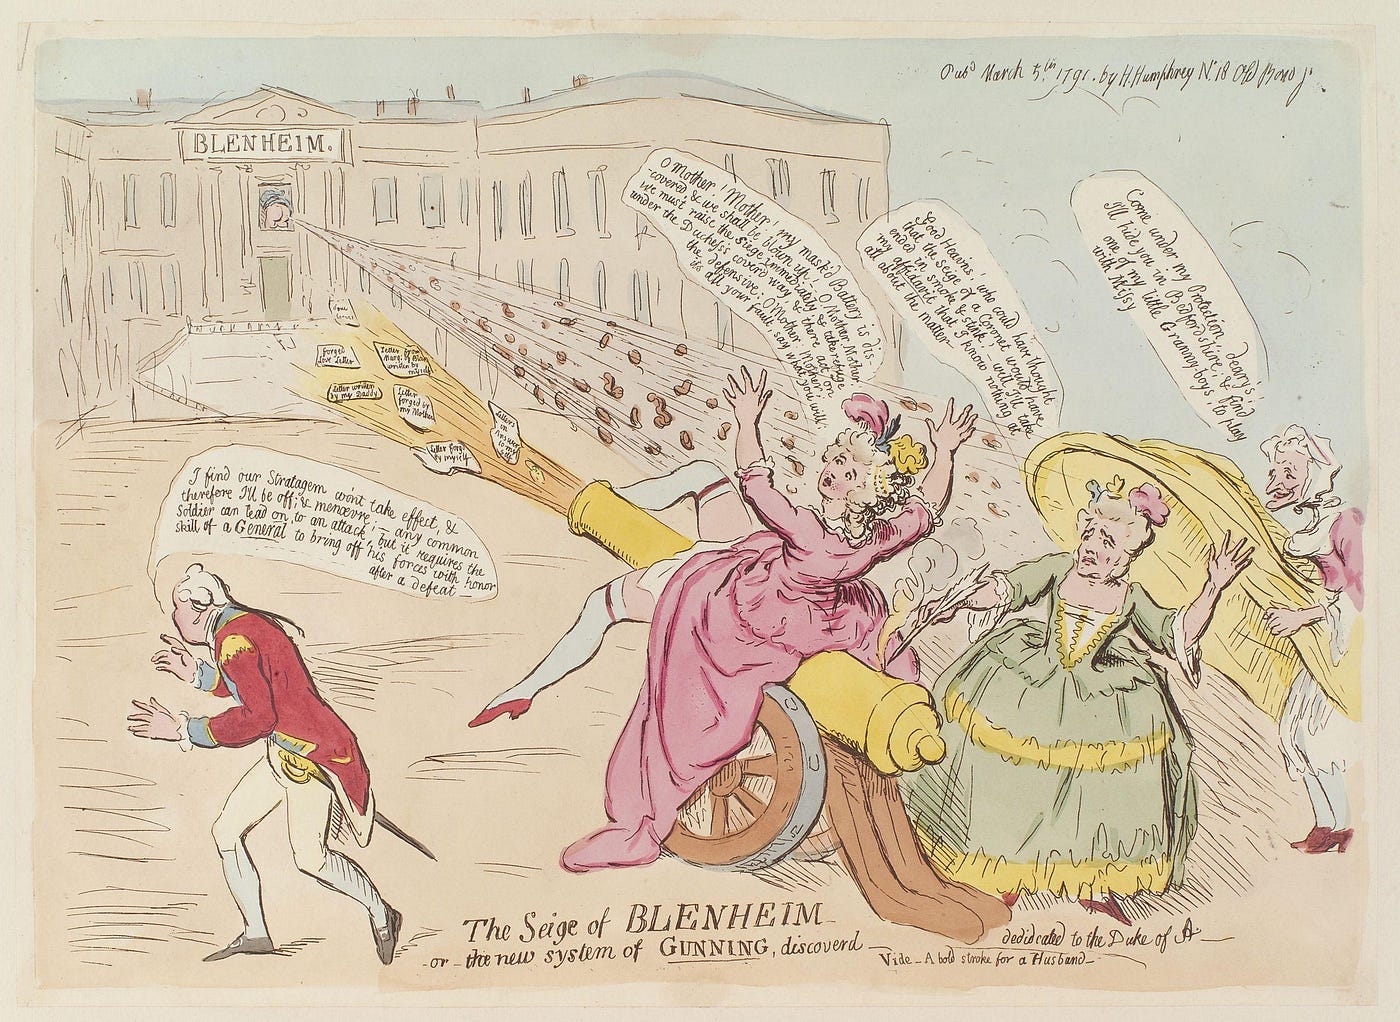 Pub.d March 5.th 1791. by H. Humphrey N.º 18 Old Bond S.t
BLENHEIM.
O Mother! Mother! my mask'd Battery is dis-
-coverd & we shall be blown up! - O, Mother Mother
we must raise the Siege immediately & take refuge
under the Duchess's coverd way, & there act on
the defensive, O Mother Mother!
its all your fault say what you will
Good Heavens! who could have thought
that the Seige of a Coronet would have
ended in smoke & stink - well I'll take
my affidavit that I know nothing at
all about the matter
Come under my Protection, deary's!
I'll hide you in Bedfordshire, & find
one of my little Granny-boys, to play
with Missy
Forged
Love Letter
Letter from
Marq: of Blan
written by
myself
Letter written
by my Daddy
Letter
forged by
my Mother
Letters
in
Answer
to my
self
Letter forg'd
by myself
I find our Stratagem won't take effect, &
therefore I'll be off; & menœvre; - any common
Soldier can lead on, to an attack, but it requires the
skill of a General to bring off his forces with honor
after a defeat
The Seige of BLENHEIM
- or - the new system of GUNNING, discoverd
dedidcated to the Duke of A
Vide - A bold stroke for a Husband -